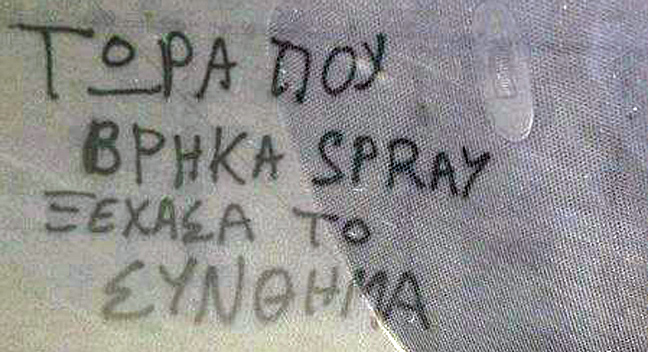 ΤΩΡΑ ΠΟΥ
ΒΡΗΚΑ SPRAY
ΞΕΧΑΣΑ ΤΟ
ΣΥΝΘΗΜΑ